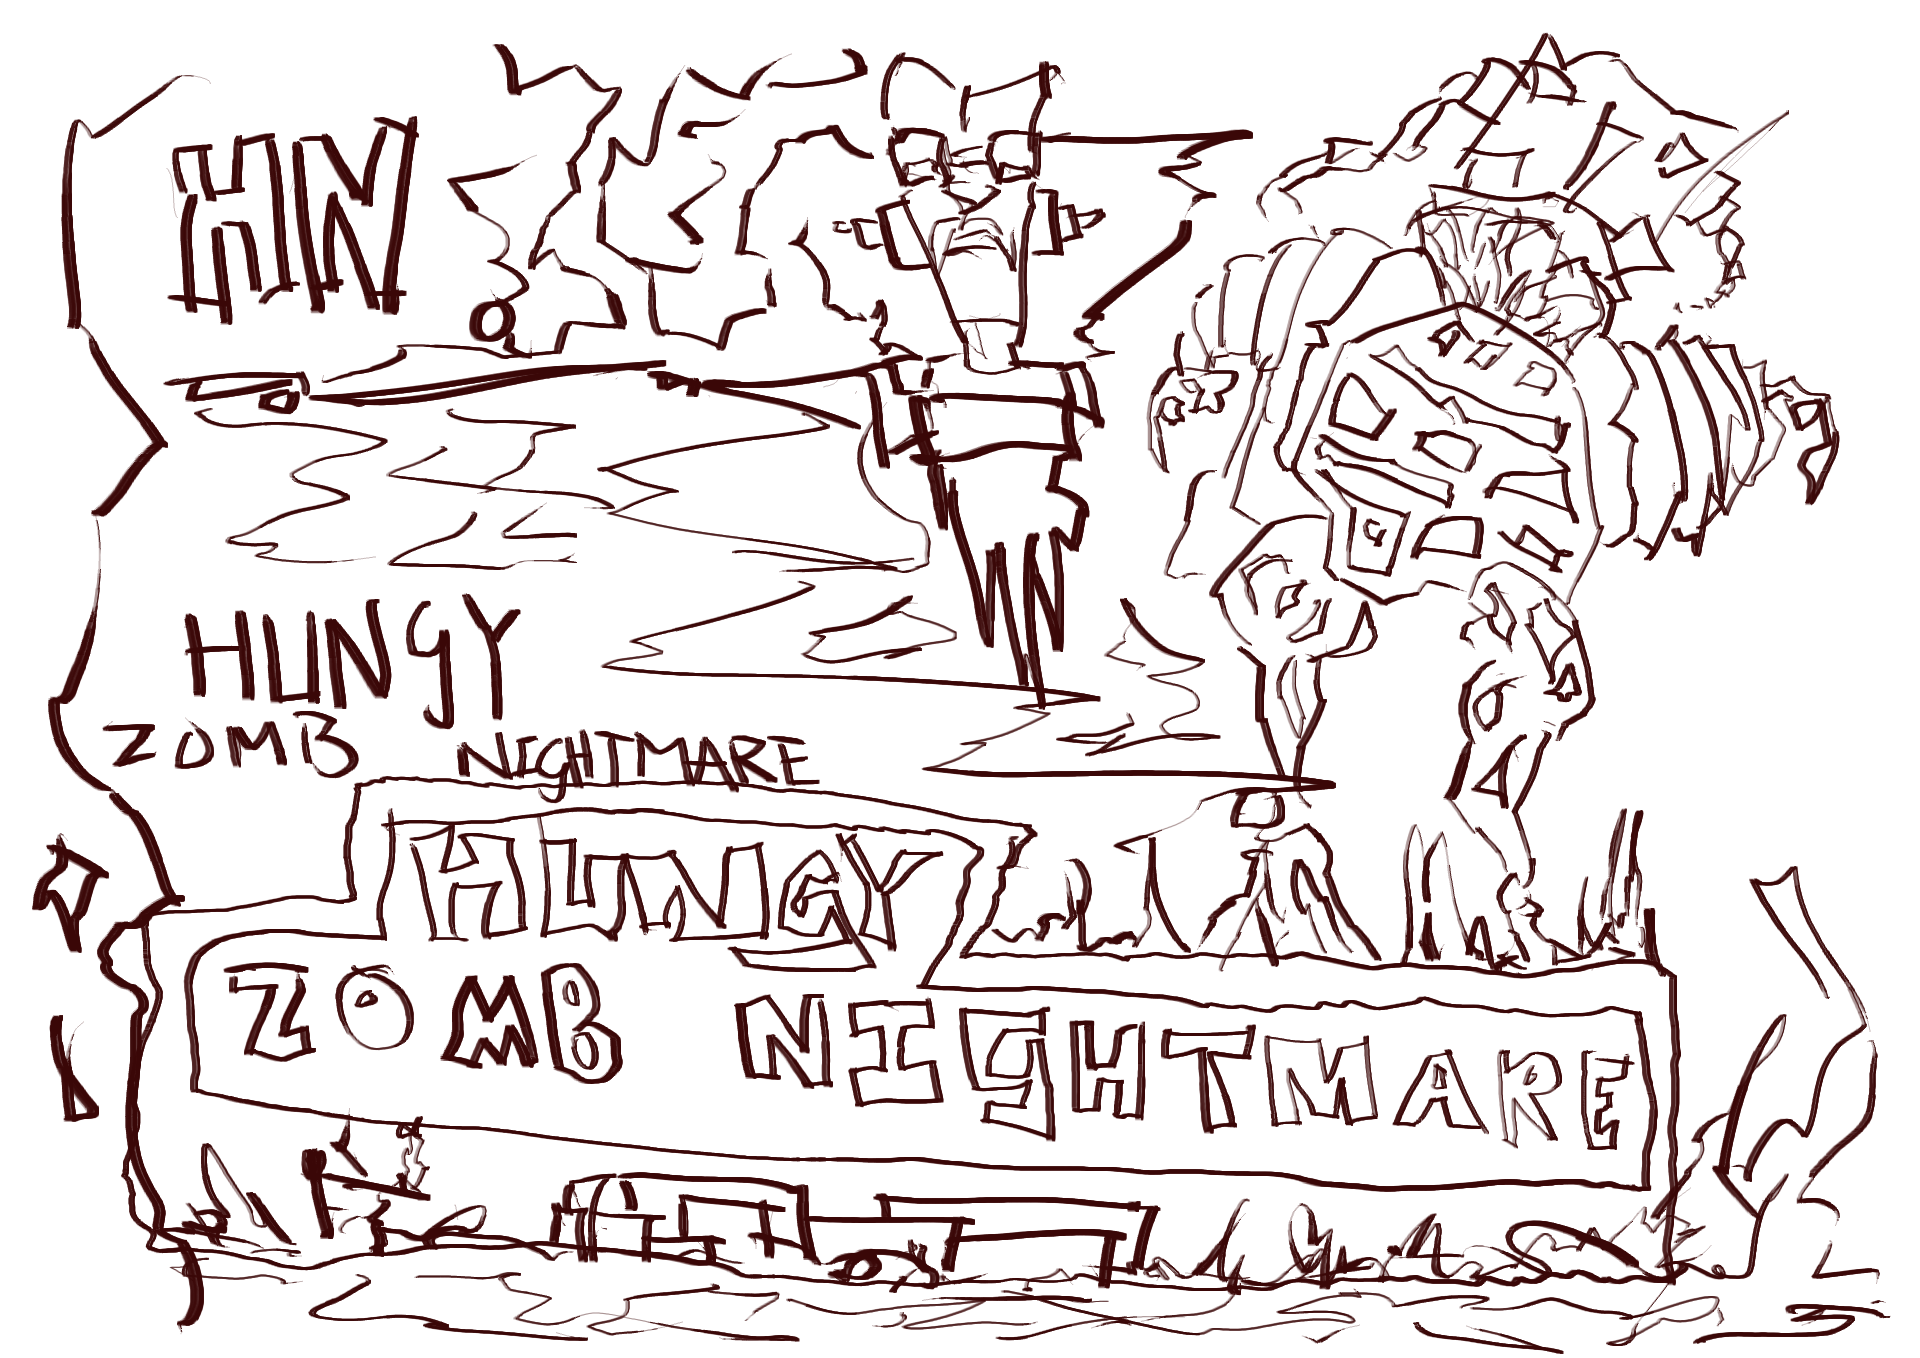 HN
HUNGY
ZOMB NIGHTMARE
HUNGY
ZOMB NIGHTMARE